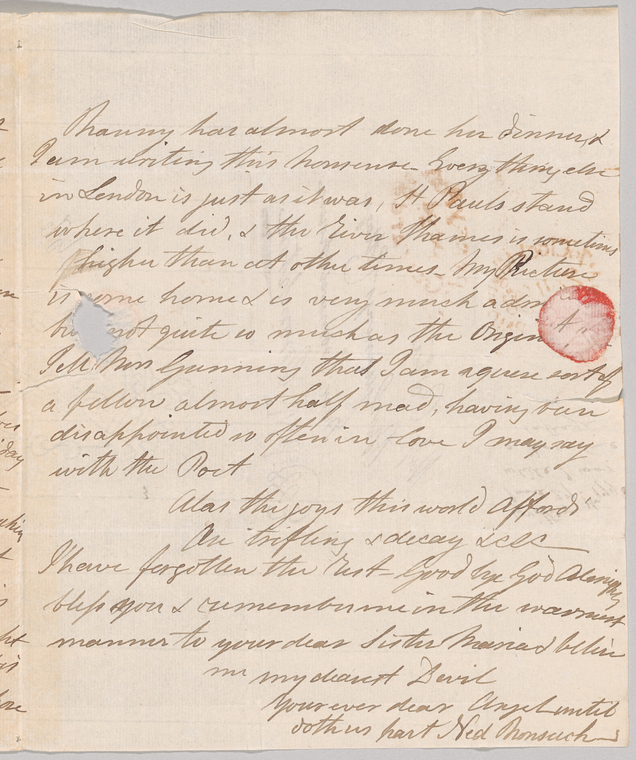 Fanny has almost done her dinner, &
I am writing this nonsense - Everything else
in London is just as it was, St Pauls stand
where it did, & the River Thames is sometimes
higher than at other times - My Picture
is come home & is very much adm
not quite so much as the Origin
Tell Mrs Gunning that I am a queer sort of
a fellow almost half mad, having been
disappointed so often in love I may say
with the Poet
Alas the joys this world affords
Are trifling & decay &c &c
I have forgotten the rest - Good bye God Almighty
bless you & remember me in the warmest
manner to your dear Sister Maria & believe
me my dearest Devil
your ever dear Angel until
doth us part Ned